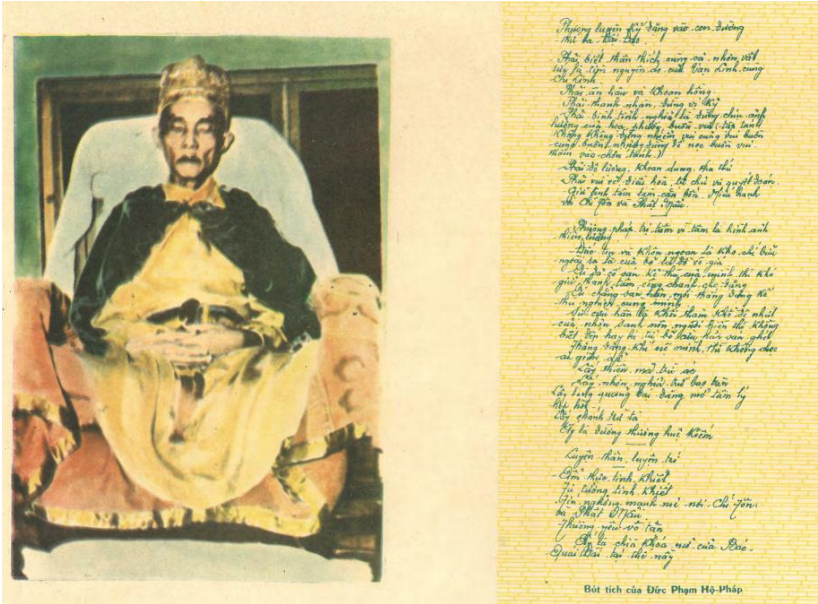 Phương luyện Kỷ đặng vào con đường
thứ ba Đại Đạo
Phải biết thân thích cùng cả nhơn vật
tức là tìm nguyên do của Vạn Linh cùng
Chí Linh
Phải ân hậu và khoan hồng.
Phải thanh nhàn, đừng vị kỷ
Phải bình tĩnh, nghĩa là đừng chịu ảnh
hưởng của họa phước buồn vui (tập tánh
không không đừng nhiễm, vui cũng vui buồn
cùng buồn nhưng đừng để nọc buồn vui
thấm vào chơn tánh.)
Phải độ lượng, khoan dung, tha thứ
Phải vui vẻ, điều hòa, tự chủ và quyết đoán.
Giữ linh tâm làm căn bổn. Hiếu hạnh
về Chí Tôn và Phật Mẫu.
Phương pháp trị tâm vì tâm là hình ảnh
thiên lương
Đức tin và khôn ngoan là kho chí bửu
ngoài ra là của bỏ là đồ vô giá
Ai đã cố oán kẻ thù của mình thì khó
giữ thanh tâm cho chánh
Ai chẳng oán hận mới thắng đặng kẻ
thù nghịch cùng mình
Sự cừu hận là khối thảm khổ đệ nhứt
của nhơn sanh nên người hiền thì không
biết đến hay là từ bỏ cừu hận oán ghét
Thắng đặng khí nộ mình thì không chọc
ai giận
Lấy thiện mà trừ ác
Lấy nhơn nghĩa trừ bạo tàn
Lấy lòng quảng đại đặng mở tâm lý
hẹp hòi
Lấy chánh trừ tà
Ấy là đường thương huệ kiếm
Luyện thân luyện trí
Ẩm thực tinh khiết
Tư tưởng tinh khiết
Tín ngưỡng mạnh mẽ nơi Chí Tôn
và Phật Mẫu
Thương yêu vô tận
Ấy là chìa khóa mở cửa Bát
Quái Đài tại thế này
Bút tích của Đức Phạm Hộ-Pháp